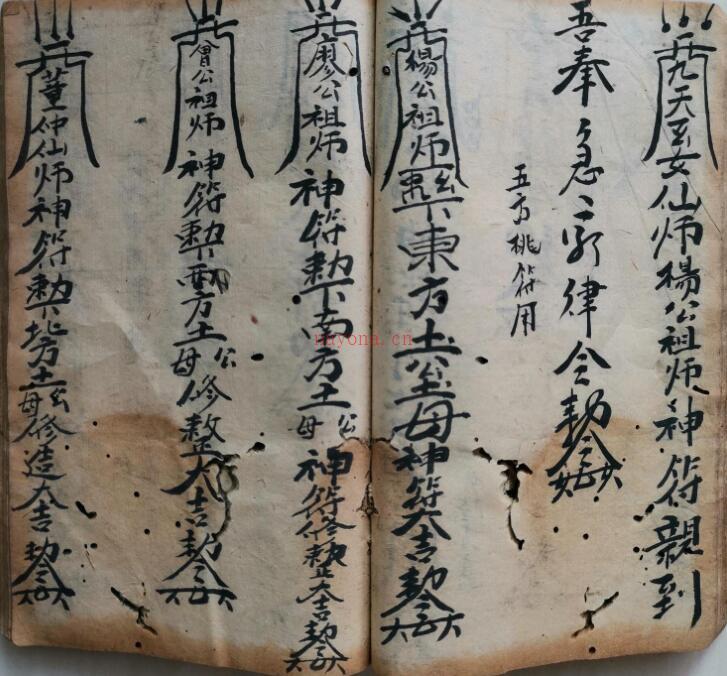 九天玄女仙师楊公祖师神符親到
吾奉急急如律令勅令
五方桃符用
楊公祖师勅下東方土公土母神符大吉勅令
廖公祖师神符勅下南方土公母神符修整大吉勅令
曾公祖师神符勅下西方土公母修整大吉勅令
董仲仙师神符勅下北方土公母修造大吉勅令
nayona.cn